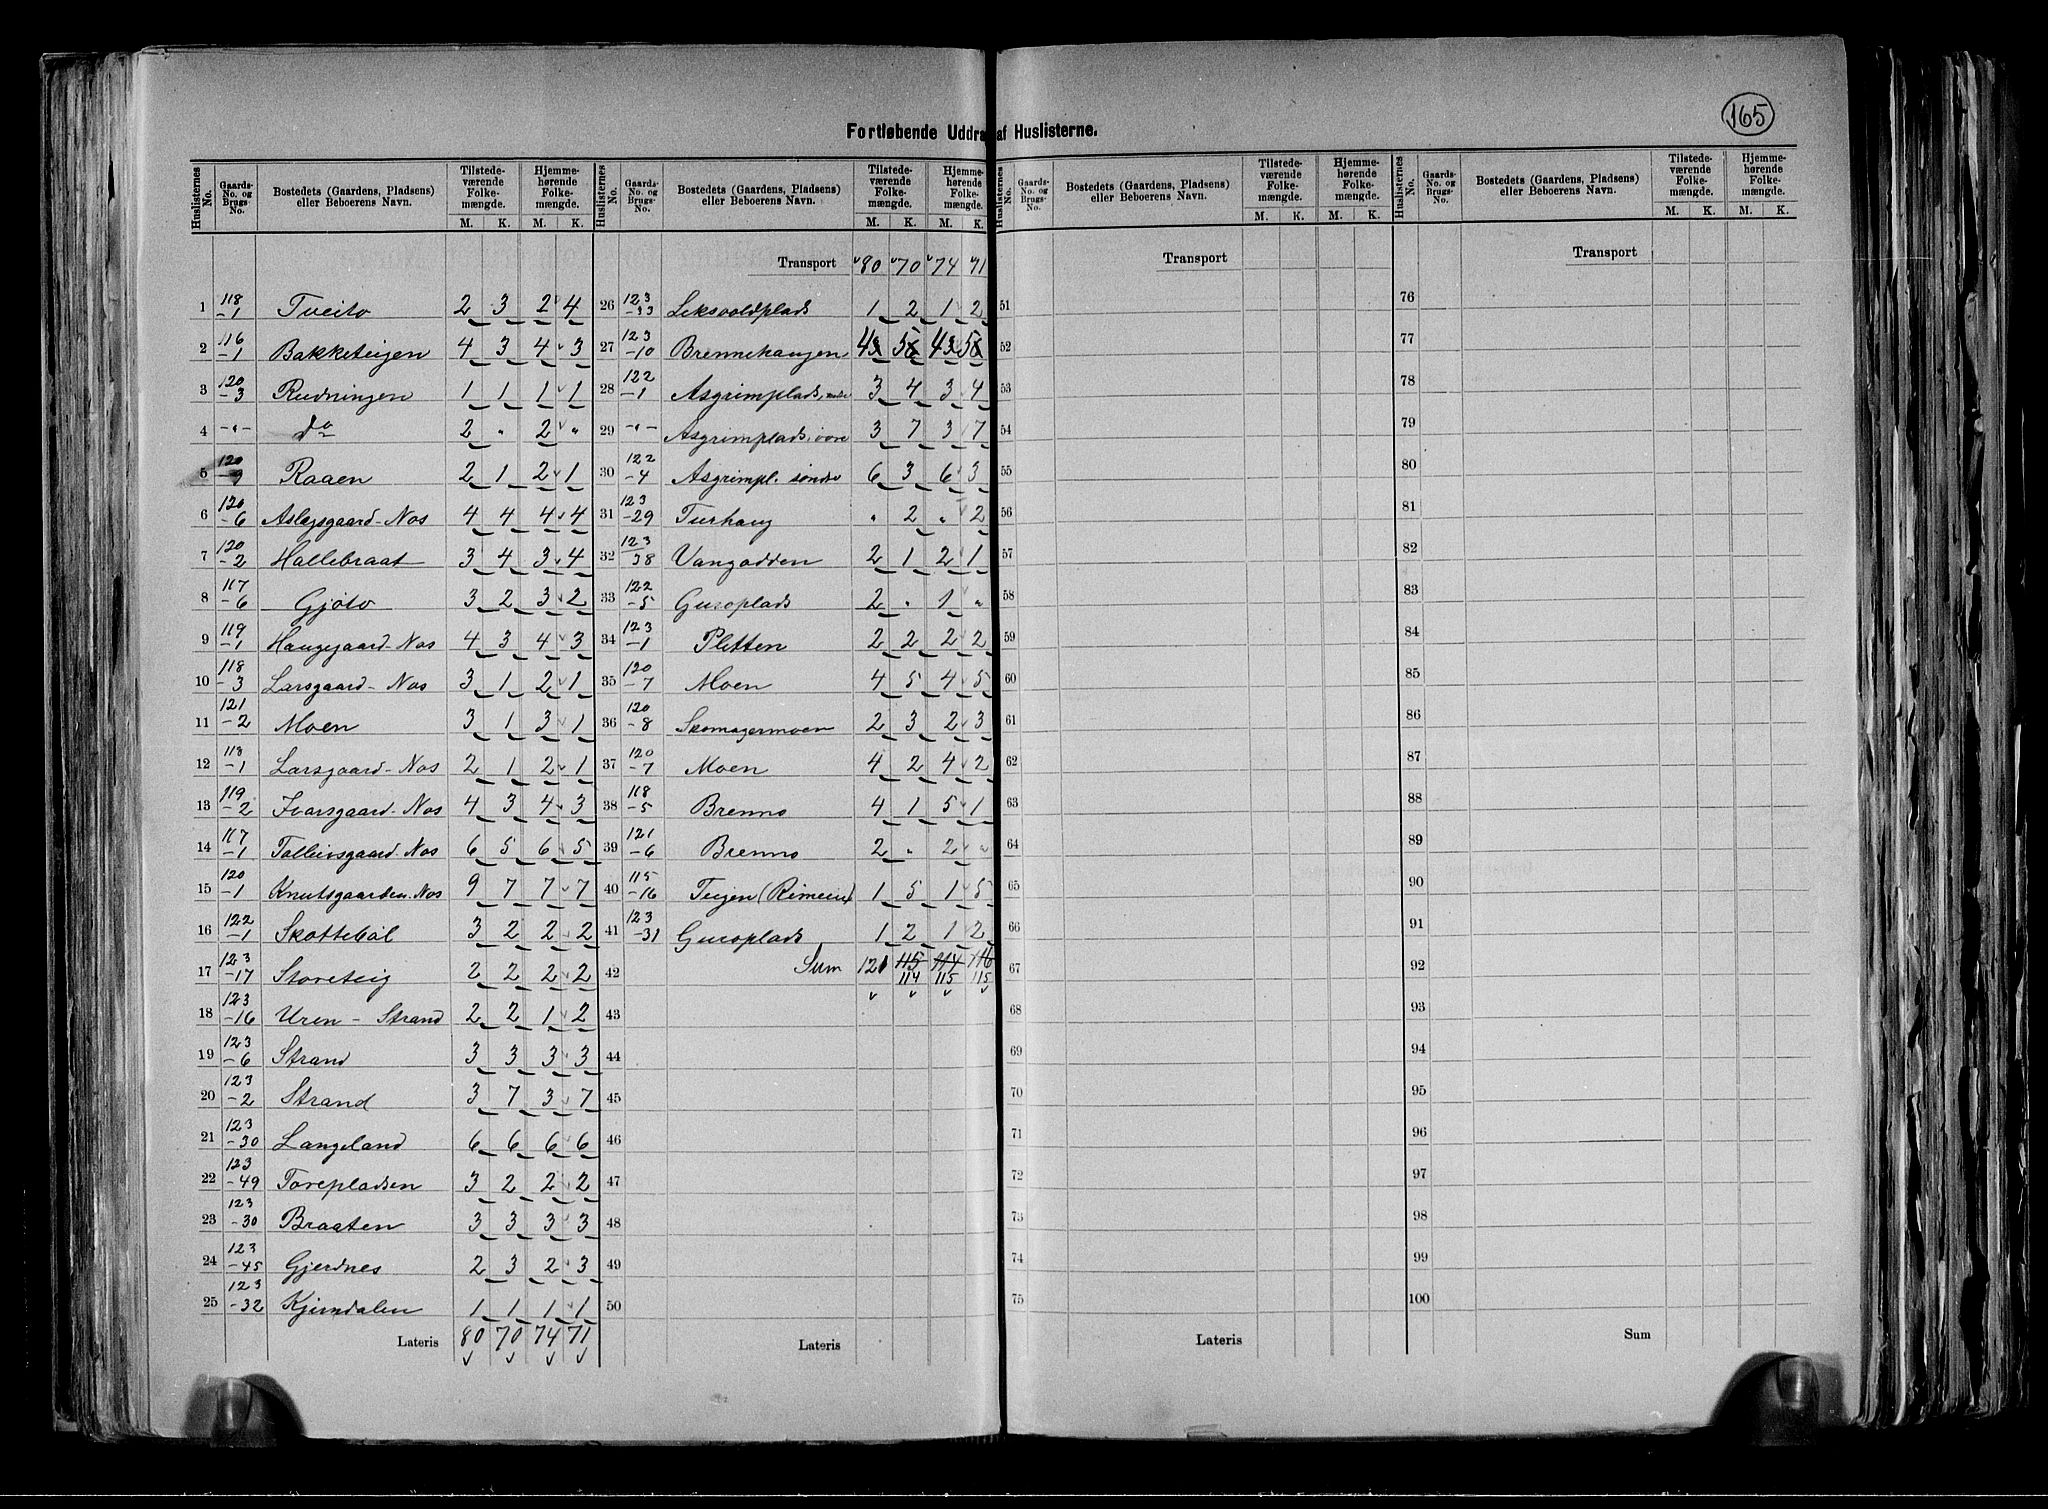 165
Fortløbende Uddra af Huslisterne.
Huslisternes No. | Gaards-No. og Brugs-No. | Bostedets (Gaardens, Pladsens) eller Beboerens Navn. | Tilstedeværende Folkemængde. M. K. | Hjemmehørende Folkemængde. M. K.
1 118-1 Tveito 2 3 2 4
2 116-1 Bakketeigen 4 3 4 3
3 120-3 Rudningen 1 1 1 1
4 -"- do 2 " 2 "
5 120-9 Raaen 2 1 2 1
6 120-6 Aslegsgaard-Nos 4 4 4 4
7 120-2 Hallebraat 3 4 3 4
8 117-6 Gjøto 3 2 3 2
9 119-1 Haugegaard-Nos 4 3 4 3
10 118-3 Larsgaard-Nos 3 1 2 1
11 121-2 Moen 3 1 3 1
12 113-1 Larsgaard-Nos 2 1 2 1
13 119-2 Ivarsgaard-Nos 4 3 4 3
14 117-1 Tolleivsgaard-Nos 6 5 6 5
15 120-1 Knutsgaarden-Nos 9 7 7 7
16 122-1 Skottebøl 3 2 2 2
17 123-17 Storeteig 2 2 2 2
18 123-16 Uren - Strand 2 2 1 2
19 123-6 Strand 3 3 3 3
20 123-2 Strand 3 7 3 7
21 123-30 Langeland 6 6 6 6
22 123-49 Torepladsen 3 2 2 2
23 123-30 Braaten 3 3 3 3
24 123-45 Gjerdnes 2 3 2 3
25 123-32 Kjimdalen 1 1 1 1
Lateris 80 70 74 71
Huslisternes No. | Gaards-No. og Brugs-No. | Bostedets (Gaardens, Pladsens) eller Beboerens Navn. | Tilstedeværende Folkemængde. M. K. | Hjemmehørende Folkemængde. M. K.
Transport 80 70 74 71
26 123-33 Leksvoldplads 1 2 1 2
27 123-10 Brennehaugen 4 5 4 5
28 122-1 Asgrimplads, 3 4 3 4
29 -"- Asgrimplads, øvre 3 7 3 7
30 122-4 Asgrimpl. søndre 6 3 6 3
31 123-29 Turhaug " 2 " 2
32 123-38 Vangodden 2 1 2 1
33 122-5 Guroplads 2 " 1 "
34 123-1 Pletten 2 2 2 2
35 120-7 Moen 4 5 4 5
36 120-8 Skomagermoen 2 3 2 3
37 120-7 Moen 4 2 4 2
38 118-5 Brenno 4 1 5 1
39 121-6 Brenno 2 " 2 "
40 115-16 Teigen 1 5 1 5
41 123-31 Guroplads 1 2 1 2
42 Sum 121 115 114 116
114 115 115
43
44
45
46
47
48
49
50
Lateris
Huslisternes No. | Gaards-No. og Brugs-No. | Bostedets (Gaardens, Pladsens) eller Beboerens Navn. | Tilstedeværende Folkemængde. M. K. | Hjemmehørende Folkemængde. M. K.
Transport
51
52
53
54
55
56
57
58
59
60
61
62
63
64
65
66
67
68
69
70
71
72
73
74
75
Lateris
Huslisternes No. | Gaards-No. og Brugs-No. | Bostedets (Gaardens, Pladsens) eller Beboerens Navn. | Tilstedeværende Folkemængde. M. K. | Hjemmehørende Folkemængde. M. K.
Transport
76
77
78
79
80
81
82
83
84
85
86
87
88
89
90
91
92
93
94
95
96
97
98
99
100
Sum